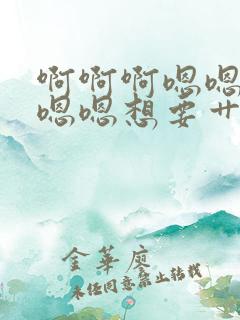 啊啊啊嗯嗯
嗯嗯想要艹
金华廖
未经同意禁止转载